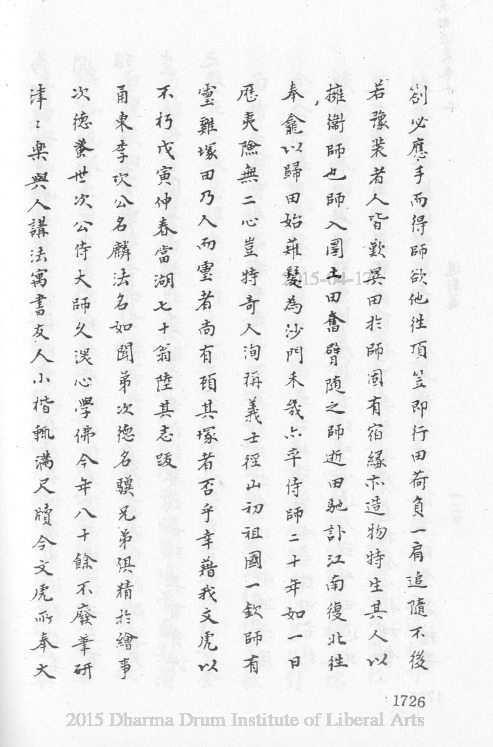 劄必應手而得師欲他徃頂笠即行田荷負一肩追隨不後
若豫裝者人皆歎異田於師固有宿緣亦造物特生其人以
擁衛師也師入圜土田奮臂随之師逝田馳訃江南復北徃
奉龕以歸田始薙髮為沙門未幾亦卒侍師二十年如一日
歷夷險無二心豈特奇人洵稱義士徑山初祖國一欽師有
靈雞塚田乃人而靈者尚有頋其塚者否乎幸藉我文虎以
不朽戊寅仲春當湖七十翁陸其志跋
甬東李次公名麟法名如聞弟次德名驥兄弟俱精於繪事
次德蚤世次公侍大師久潠心學佛今年八十餘不廢筆研
津〻樂與人講法寓書友人小楷輒滿尺牘今文虎所奉大
1726
2015-04-12
2015 Dharma Drum Institute of Liberal Arts